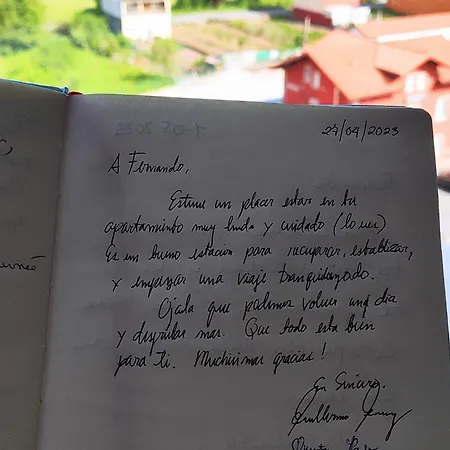 24/04/2023
A Fernando,
Estuve un placer estar en tu
apartamiento muy linda y cuidado (lo ves)
Es un bueno estacion para recuperar, establizar,
y empezar una viaje
Ojala que podemos volver una dia
y disfrutar mas. Que todo esta bien
para ti. Muchisimas gracias!
En Sincero,
Guillermo